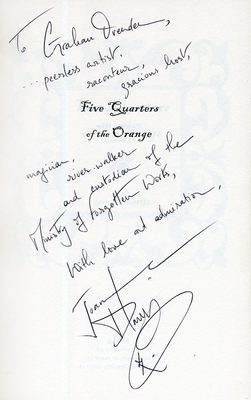 To Graham Ovenden,
... peerless artist,
raconteur,
gracious host,
Five Quarters
of the Orange
magician,
river-walker
and custodian of the
Ministry of Forgotten Works,
With love and admiration,
Joanne Harris